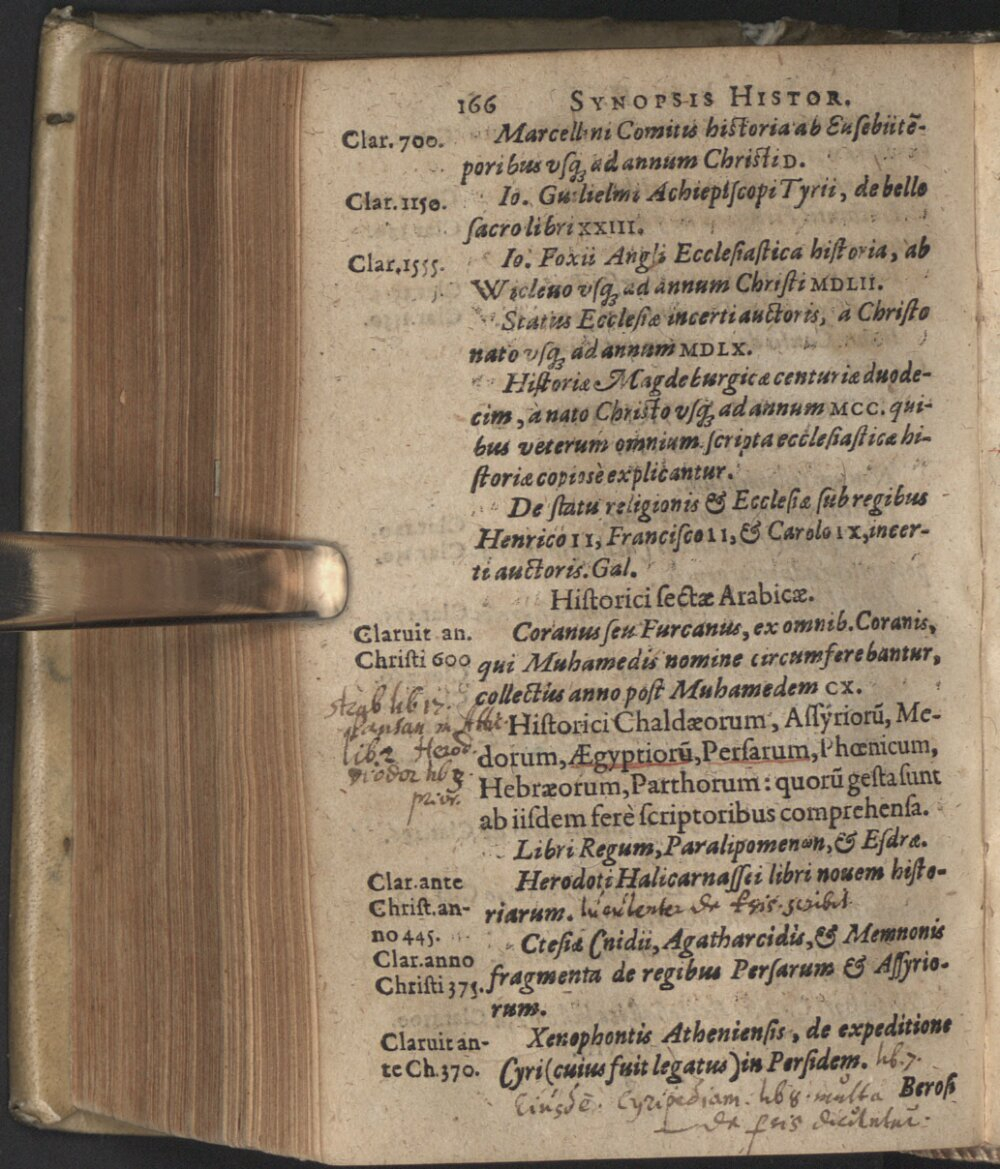 166 SYNOPSIS HISTOR.
Clar. 700. Marcellini Comitis historia ab Eusebii tē-
poribus vsq; ad annum Christi D.
Clar. 1150. Io. Guilielmi Achiepiscopi Tyrii, de bello
sacro libri XXIII.
Clar. 1555. Io. Foxii Angli Ecclesiastica historia, ab
Wicleuo vsq; ad annum Christi MDLII.
Status Ecclesiæ incerti auctoris, à Christo
nato vsq; ad annum MDLX.
Historiæ Magdeburgicæ centuriæ duode-
cim, à nato Christo vsq; ad annum MCC. qui-
bus veterum omnium scripta ecclesiasticæ hi-
storiæ copiosè explicantur.
De statu religionis & Ecclesiæ sub regibus
Henrico II, Francisco II, & Carolo IX, incer-
ti auctoris. Gal.
Historici sectæ Arabicæ.
Claruit an. Coranus seu Furcanus, ex omnib. Coranis,
Christi 600 qui Muhamedis nomine circumferebantur,
collectus anno post Muhamedem CX.
strab lib 17.
Historici Chaldæorum, Assyriorū, Me-
lib. 2 Herod.
dorum, Ægyptiorū, Persarum, Phœnicum,
Diodor lib 3
Hebræorum, Parthorum: quorū gesta sunt
ab iisdem ferè scriptoribus comprehensa.
Libri Regum, Paralipomenωn, & Esdræ.
Clar. ante Herodoti Halicarnassei libri nouem histo-
Christ. an- riarum. luculenter de scribit
no 445. Ctesiæ Cnidii, Agatharcidis, & Memnonis
Clar. anno
Christi 375. fragmenta de regibus Persarum & Assyrio-
rum.
Claruit an- Xenophontis Atheniensis, de expeditione
te Ch. 370. Cyri (cuius fuit legatus) in Persidem. lib. 7.
Eiusdē. Cyripediam. lib 8. multa
Berosi
de